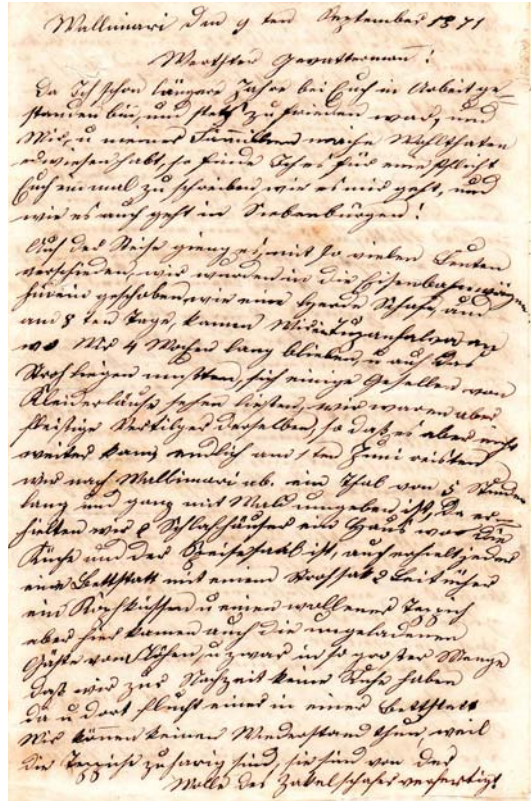 Wallinari den 9 ten September 1871
Werthter Gevattermann!
Da Ich schon längere Jahre bei Euch in Arbeit ge-
standen bin, und stets zufrieden war, und
Mir, u meiner Familien manche Wohlthaten
erwiesen habt, so finde Ich es für eine Pflicht
Euch einmal zu schreiben wie es mir geht, und
wie es auch geht in Siebenbürgen!
Auf der Reise gieng es, mit so vielen Leuten
verschieden, wir wurden in die Eisenbahnwägen
hinein geschoben, wie eine Herde Schafe, und
am 8 ten Tage, kamen Wir in an
wo Wir 4 Wochen lang blieben, u auch das
Stroh liegen mußten, sich einige Gesellen von
Kleiderläuse sehen ließen, wir waren aber
fleißige Vertilger derselben, so daß es aber nicht
weiter kam, endlich am 1 ten Juni reisten
wir nach Wallinari ab. ein Thal von 5 Stunden
lang und ganz mit Wald umgeben ist, Da er-
hielten wir 8 Schlafhäuser ein Haus wo die
Küche und der Speisesaal ist, auch erhielt jeder
eine Bettstatt mit einem Strohsak 2 Leitücher
ein Kopfküssen u einen wollenen Teppich
aber hier kamen auch die ungeladenen
Gäste vom u zwar in so großer Menge
daß wir zur Nachzeit keine Ruhe haben
da u dort flucht einer in einer Bettstatt
Wir können keinen Wiederstand thun, weil
die Teppiche zu harig sind, sie sind von der
Wolle des Zakelschafes verfertigt